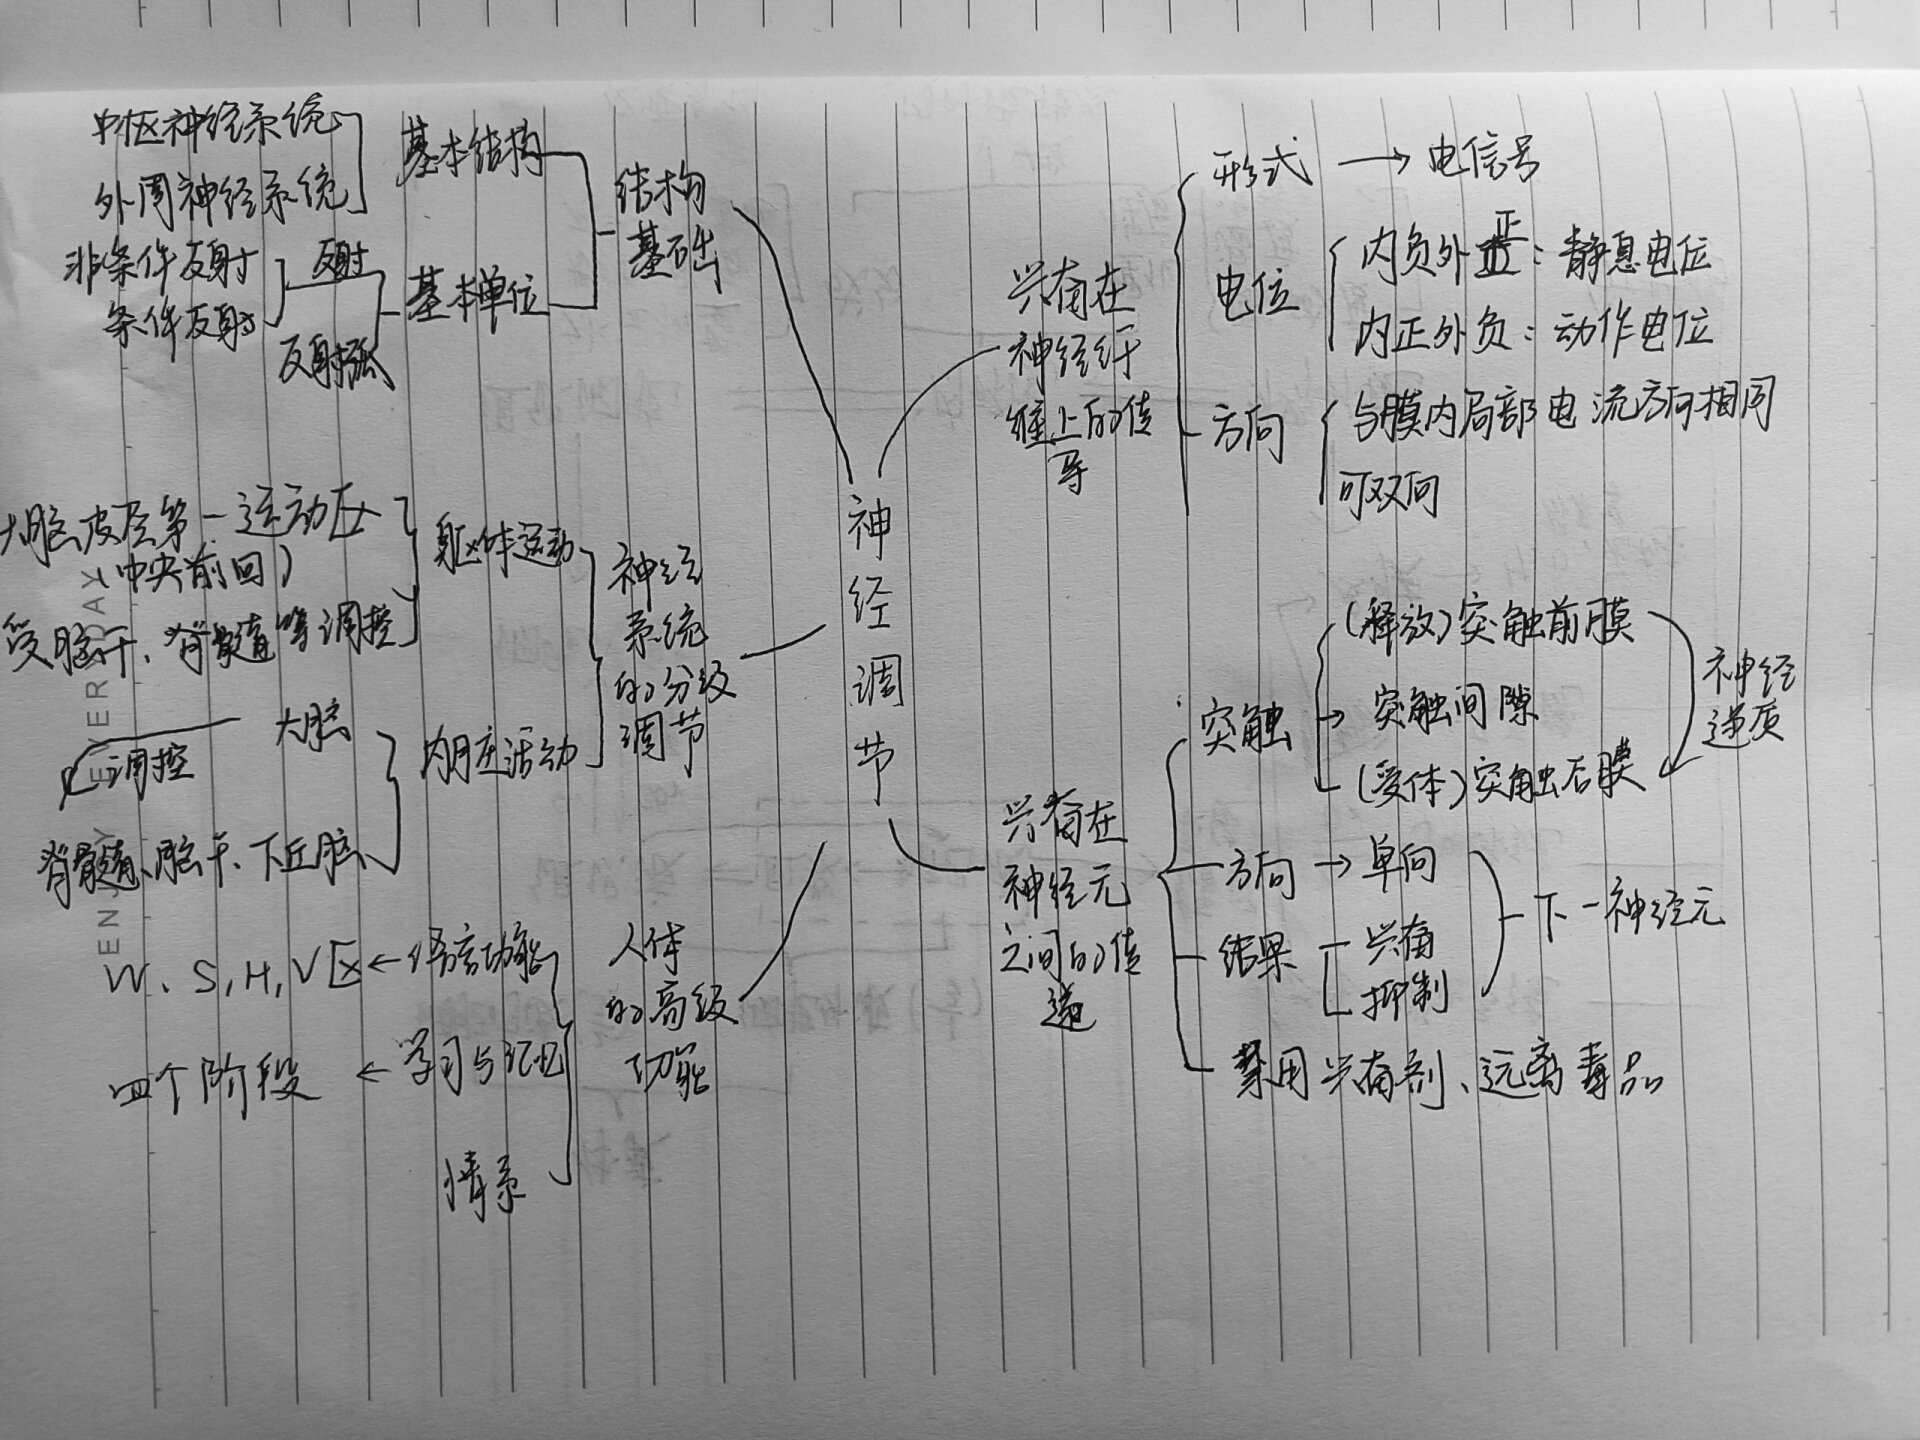 中枢神经系统
外周神经系统
基本结构
非条件反射
条件反射
反射
反射弧
基本单位
结构
基础
大脑皮层第一运动区
(中央前回)
受脑干、脊髓等调控
躯体运动
大脑
调控
脊髓、脑干、下丘脑
内脏活动
神经
系统
的分级
调节
W、S,H,V区←语言功能
四个阶段 ← 学习与记忆
情系
人体
的高级
功能
神
经
调
节
兴奋在
神经纤
维上的传
导
形式 → 电信号
电位
内负外正：静息电位
内正外负：动作电位
方向
与膜内局部电流方向相同
可双向
兴奋在
神经元
之间的传
递
突触 →
(释放)突触前膜
突触间隙
(受体)突触后膜
神经
递质
方向 → 单向
结果
兴奋
抑制
下一神经元
禁用兴奋剂、远离毒品
ENJOY EVERYDAY